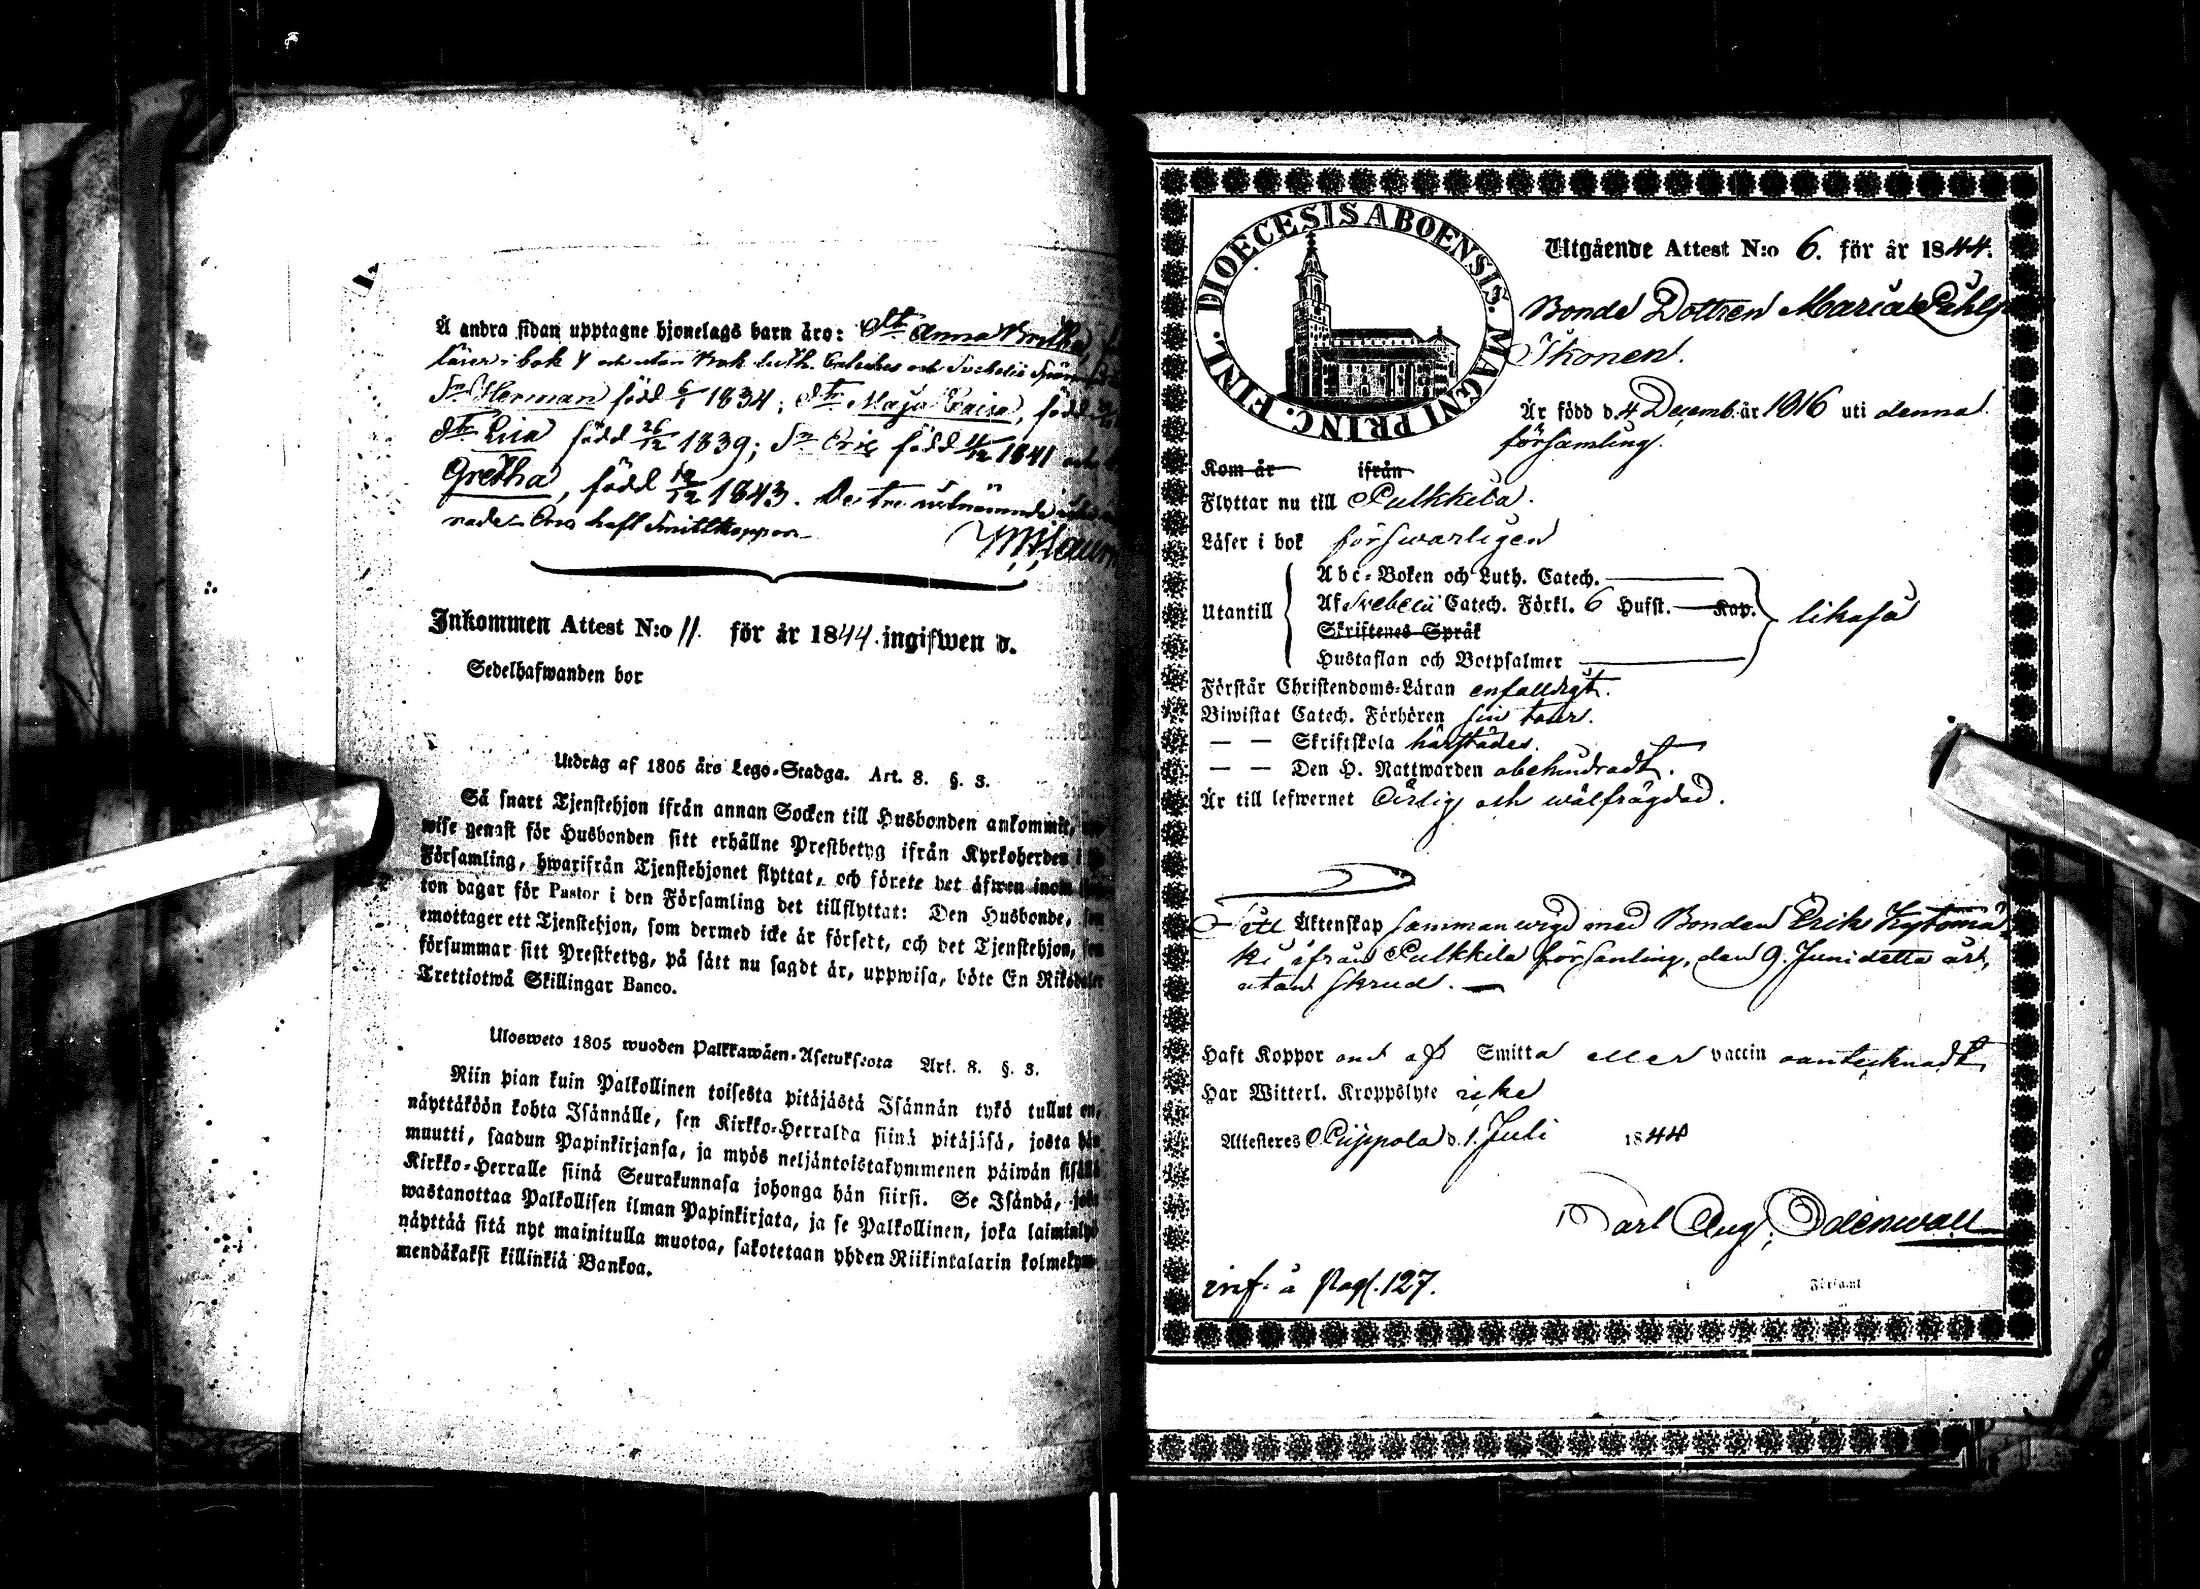 Å andra sidan upptagne hjonelags barn äro: Dtr Anna Gretha,
läser i bok y och utan bok Luth. Cateches och Svebelii
Sn Herman född 6/1 1834; Dtr Maja Caisa, född
Dtr Lisa född 26/12 1839; Sn Eric född 4/12 1841 och
Gretha, född 12/12 1843. De tre
haft Smittkoppor
Inkommen Attest N:o 11. för år 1844. ingifwen d.
Sedelhafwanden bor
Utdrag af 1805 års Lego-Stadga. Art. 8. §. 3.
Så snart Tjenstehjon ifrån annan Socken till Husbonden ankommit,
wise genast för Husbonden sitt erhållne Prestbetyg ifrån Kyrkoherden i
Församling, hwarifrån Tjenstehjonet flyttat, och förete det äfwen inom
ton dagar för Pastor i den Församling det tillflyttat: Den Husbonde,
emottager ett Tjenstehjon, som dermed icke är försedt, och det Tjenstehjon,
försummar sitt Prestbetyg, på sätt nu sagdt är, uppwisa, böte En Riksdaler
Trettiotwå Skillingar Banco.
Ulosweto 1805 wuoden Palkkawäen-Asetuksesta Art. 8. §. 3.
Niin pian kuin Palkollinen toisesta pitäjästä Isännän tykö tullut on,
näyttäköön kohta Isännälle, sen Kirkko-Herralda siinä pitäjäsä, josta hän
muutti, saadun Papinkirjansa, ja myös neljäntoistakymmenen päiwän sisällä
Kirkko-Herralle siinä Seurakunnasa johonga hän siirsi. Se Isändä, joka
wastanottaa Palkollisen ilman Papinkirjata, ja se Palkollinen, joka laiminlyö
näyttää sitä nyt mainitulla muotoa, sakotetaan yhden Riikintalarin kolmekym-
mendäkaksi killinkiä Bankoa.
DIOECESIS ABOENSIS. MAGNI PRINC. FINL.
Utgående Attest N:o 6. för år 1844.
Bonde Dottren Maria
Ikonen.
Är född d. 4 Decemb. år 1816 uti denna
församling.
Kom år ifrån
Flyttar nu till Pulkkila.
Läser i bok förswarligen
Abc-Boken och Luth. Catech.
Utantill Af Svebelii Catech. Förkl. 6 Hufst. Kap. likaså
Skriftenes Språk
Hustaflan och Botpsalmer
Förstår Christendoms-Läran enfalldigt.
Biwistat Catech. Förhören sin tour.
— — Skriftskola härstädes.
— — Den H. Nattwarden obehindradt.
Är till lefwernet Ärlig och wälfrägdad.
Till Äktenskap sammanwigd med Bonden Erik Kytömä-
ki ifrån Pulkkila församling, den 9. Juni detta år,
utan skrud. —
Haft Koppor Smitta eller vaccin oantecknadt
Har Witterl. Kroppslyte icke
Attesteres Piippola d. 1. Juli 1844
Carl Aug. Odenwall
inf. å Pag. 127.
i Församl